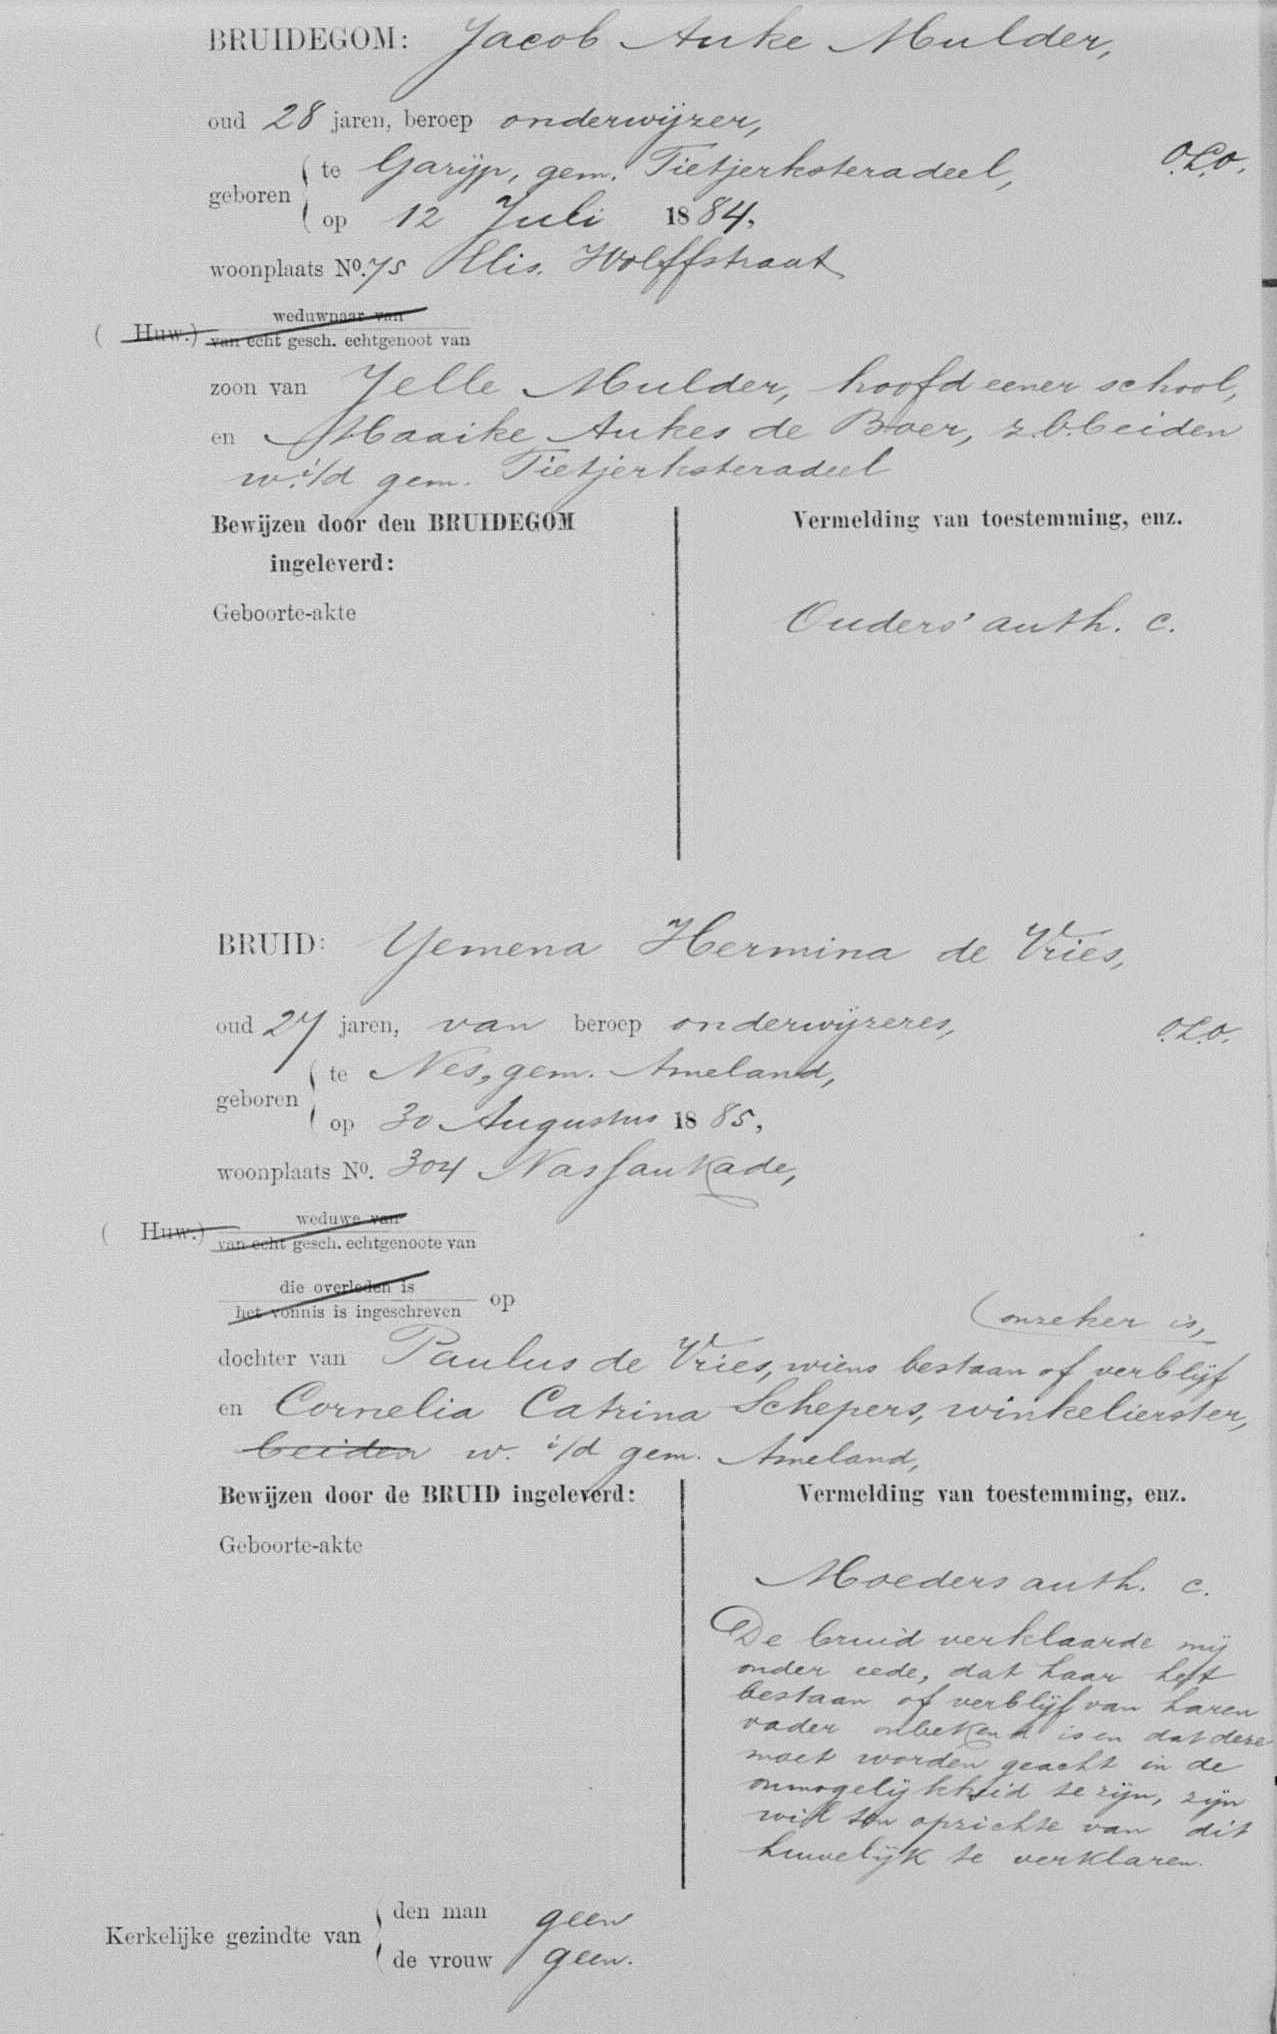 BRUIDEGOM: Jacob Auke Mulder,
oud 28 jaren, beroep onderwijzer,
O.L.O.
geboren te Garijp, gem. Tietjerksteradeel,
op 12 Juli 1884,
woonplaats No. 75 Elis. Wolffstraat
( Huw.) weduwnaar van
van echt gesch. echtgenoot van
zoon van Jelle Mulder, hoofd eener school,
en Maaike Aukes de Boer, z.b. beiden
w. i/d gem. Tietjerksteradeel
Bewijzen door den BRUIDEGOM
ingeleverd:
Geboorte-akte
Vermelding van toestemming, enz.
Ouders' auth. c.
BRUID: Yemena Hermina de Vries,
oud 27 jaren, van beroep onderwijzeres,
O.L.O.
geboren te Nes, gem. Ameland,
op 30 Augustus 1885,
woonplaats No. 304 Nassaukade,
( Huw.) weduwe van
van echt gesch. echtgenoote van
die overleden is
het vonnis is ingeschreven op
(onzeker is,
dochter van Paulus de Vries, wiens bestaan of verblijf
en Cornelia Catrina Schepers, winkelierster,
beiden w. i/d gem. Ameland,
Bewijzen door de BRUID ingeleverd:
Geboorte-akte
Vermelding van toestemming, enz.
Moeders auth. c.
De bruid verklaarde mij
onder eede, dat haar het
bestaan of verblijf van haren
vader onbekend is en dat deze
moet worden geacht in de
onmogelijkheid te zijn, zijn
wil ten opzichte van dit
huwelijk te verklaren.
Kerkelijke gezindte van den man geen
de vrouw geen.